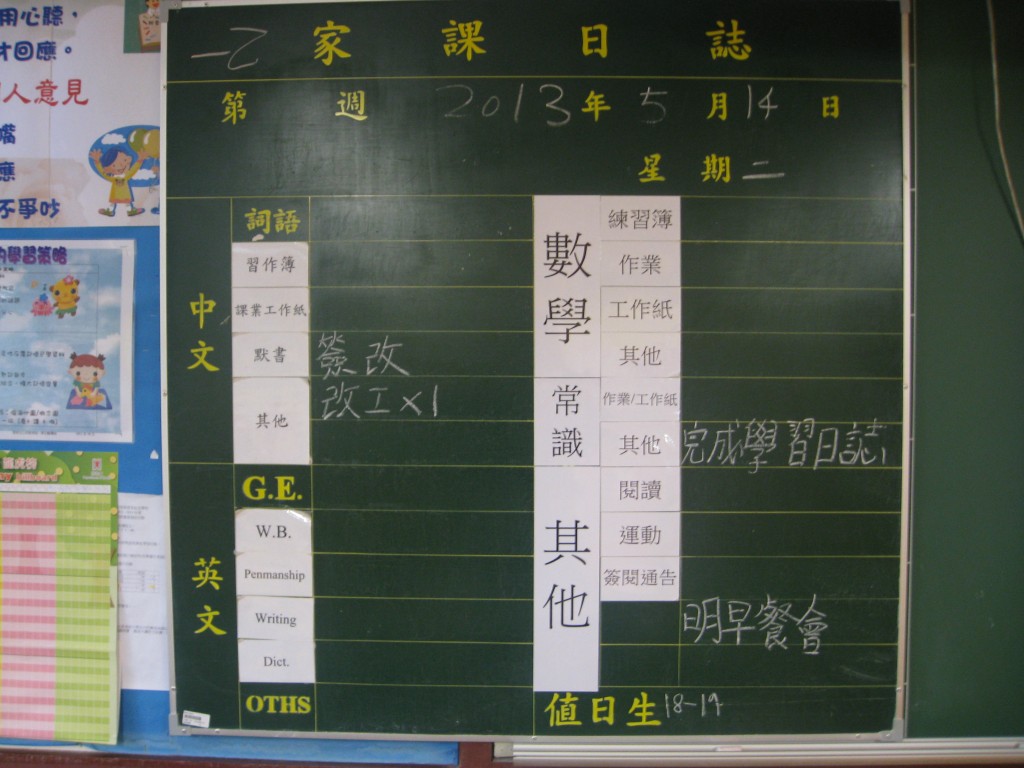 用心聽，
才回應。
人意見
嘴
應
不爭吵
的學習策略
一乙 家課日誌
第 週 2013年 5月14日
星期二
中文
詞語
習作簿
課業工作紙
默書 簽改
其他 改工x1
英文
G.E.
W.B.
Penmanship
Writing
Dict.
OTHS
數學
練習簿
作業
工作紙
其他
常識
作業/工作紙
其他 完成學習日誌
其他
閱讀
運動
簽閱通告
明早餐會
值日生 18-19